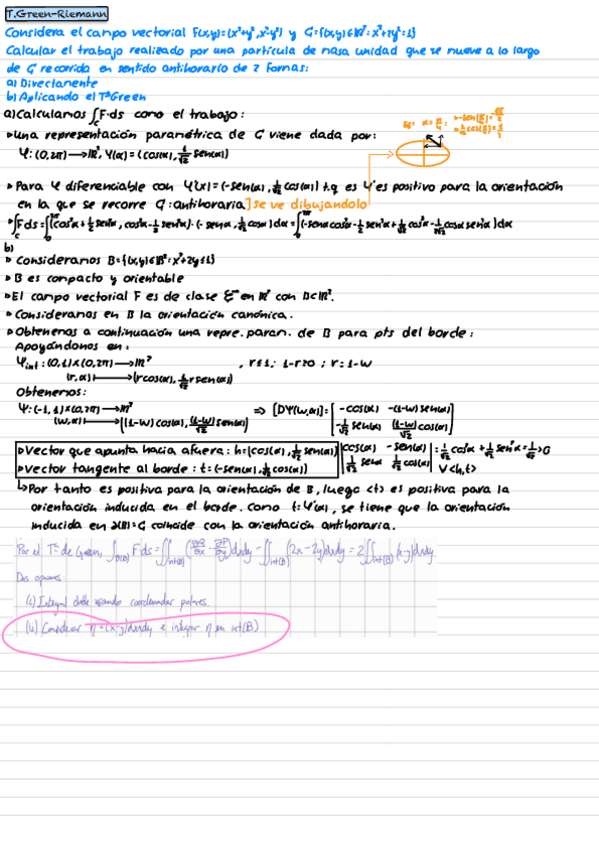 T.Green-Riemann
Considera el campo vectorial F(x,y)=(x²+y², x²-y²) y C={(x,y)∈ℝ²: x²+2y²=1}
Calcular el trabajo realizado por una partícula de masa unidad que se mueve a lo largo
de C recorrida en sentido antihorario de 2 formas:
a) Directamente
b) Aplicando el Tª Green
a) Calculamos ∫_C F·ds como el trabajo:
▸ una representación paramétrica de C viene dada por:
Ψ: (0,2π)→ℝ², Ψ(α)=(cos(α), 1/√2 sen(α))
▸ Para Ψ diferenciable con Ψ'(α)=(-sen(α), 1/√2 cos(α)) t.q es Ψ' es positivo para la orientación
en la que se recorre C: antihoraria] se ve dibujandolo
b)
▸ Consideramos B={(x,y)∈ℝ²: x²+2y²≤1}
▸ B es compacto y orientable
▸ El campo vectorial F es de clase
▸ Consideramos en B la orientación canónica.
▸ Obtenemos a continuación una repre. param. de B para pts del borde:
Apoyándonos en:
Ψint: (0,1)×(0,2π)→ℝ² , r≤1; 1-r≥0; r=1-w
(r,α)→(rcos(α), 1/√2 rsen(α))
Obtenemos:
Ψ: (-1,1)×(0,2π)→ℝ²
(w,α)→((1-w)cos(α), (1-w)/√2 sen(α))
▸ Vector que apunta hacia afuera: h=(cos(α), 1/√2 sen(α))
▸ Vector tangente al borde: t=(-sen(α), 1/√2 cos(α))
V<h,t>
↳ Por tanto es positiva para la orientación de B, luego <t> es positiva para la
orientación inducida en el borde. Como t=Ψ'(α), se tiene que la orientación
inducida en ∂(B)=C coincide con la orientación antihoraria.
Dos opciones
(i) Integral doble usando coordenadas polares.
(ii) Considerar η=(x-y)dxdy e integrar η en int(B)